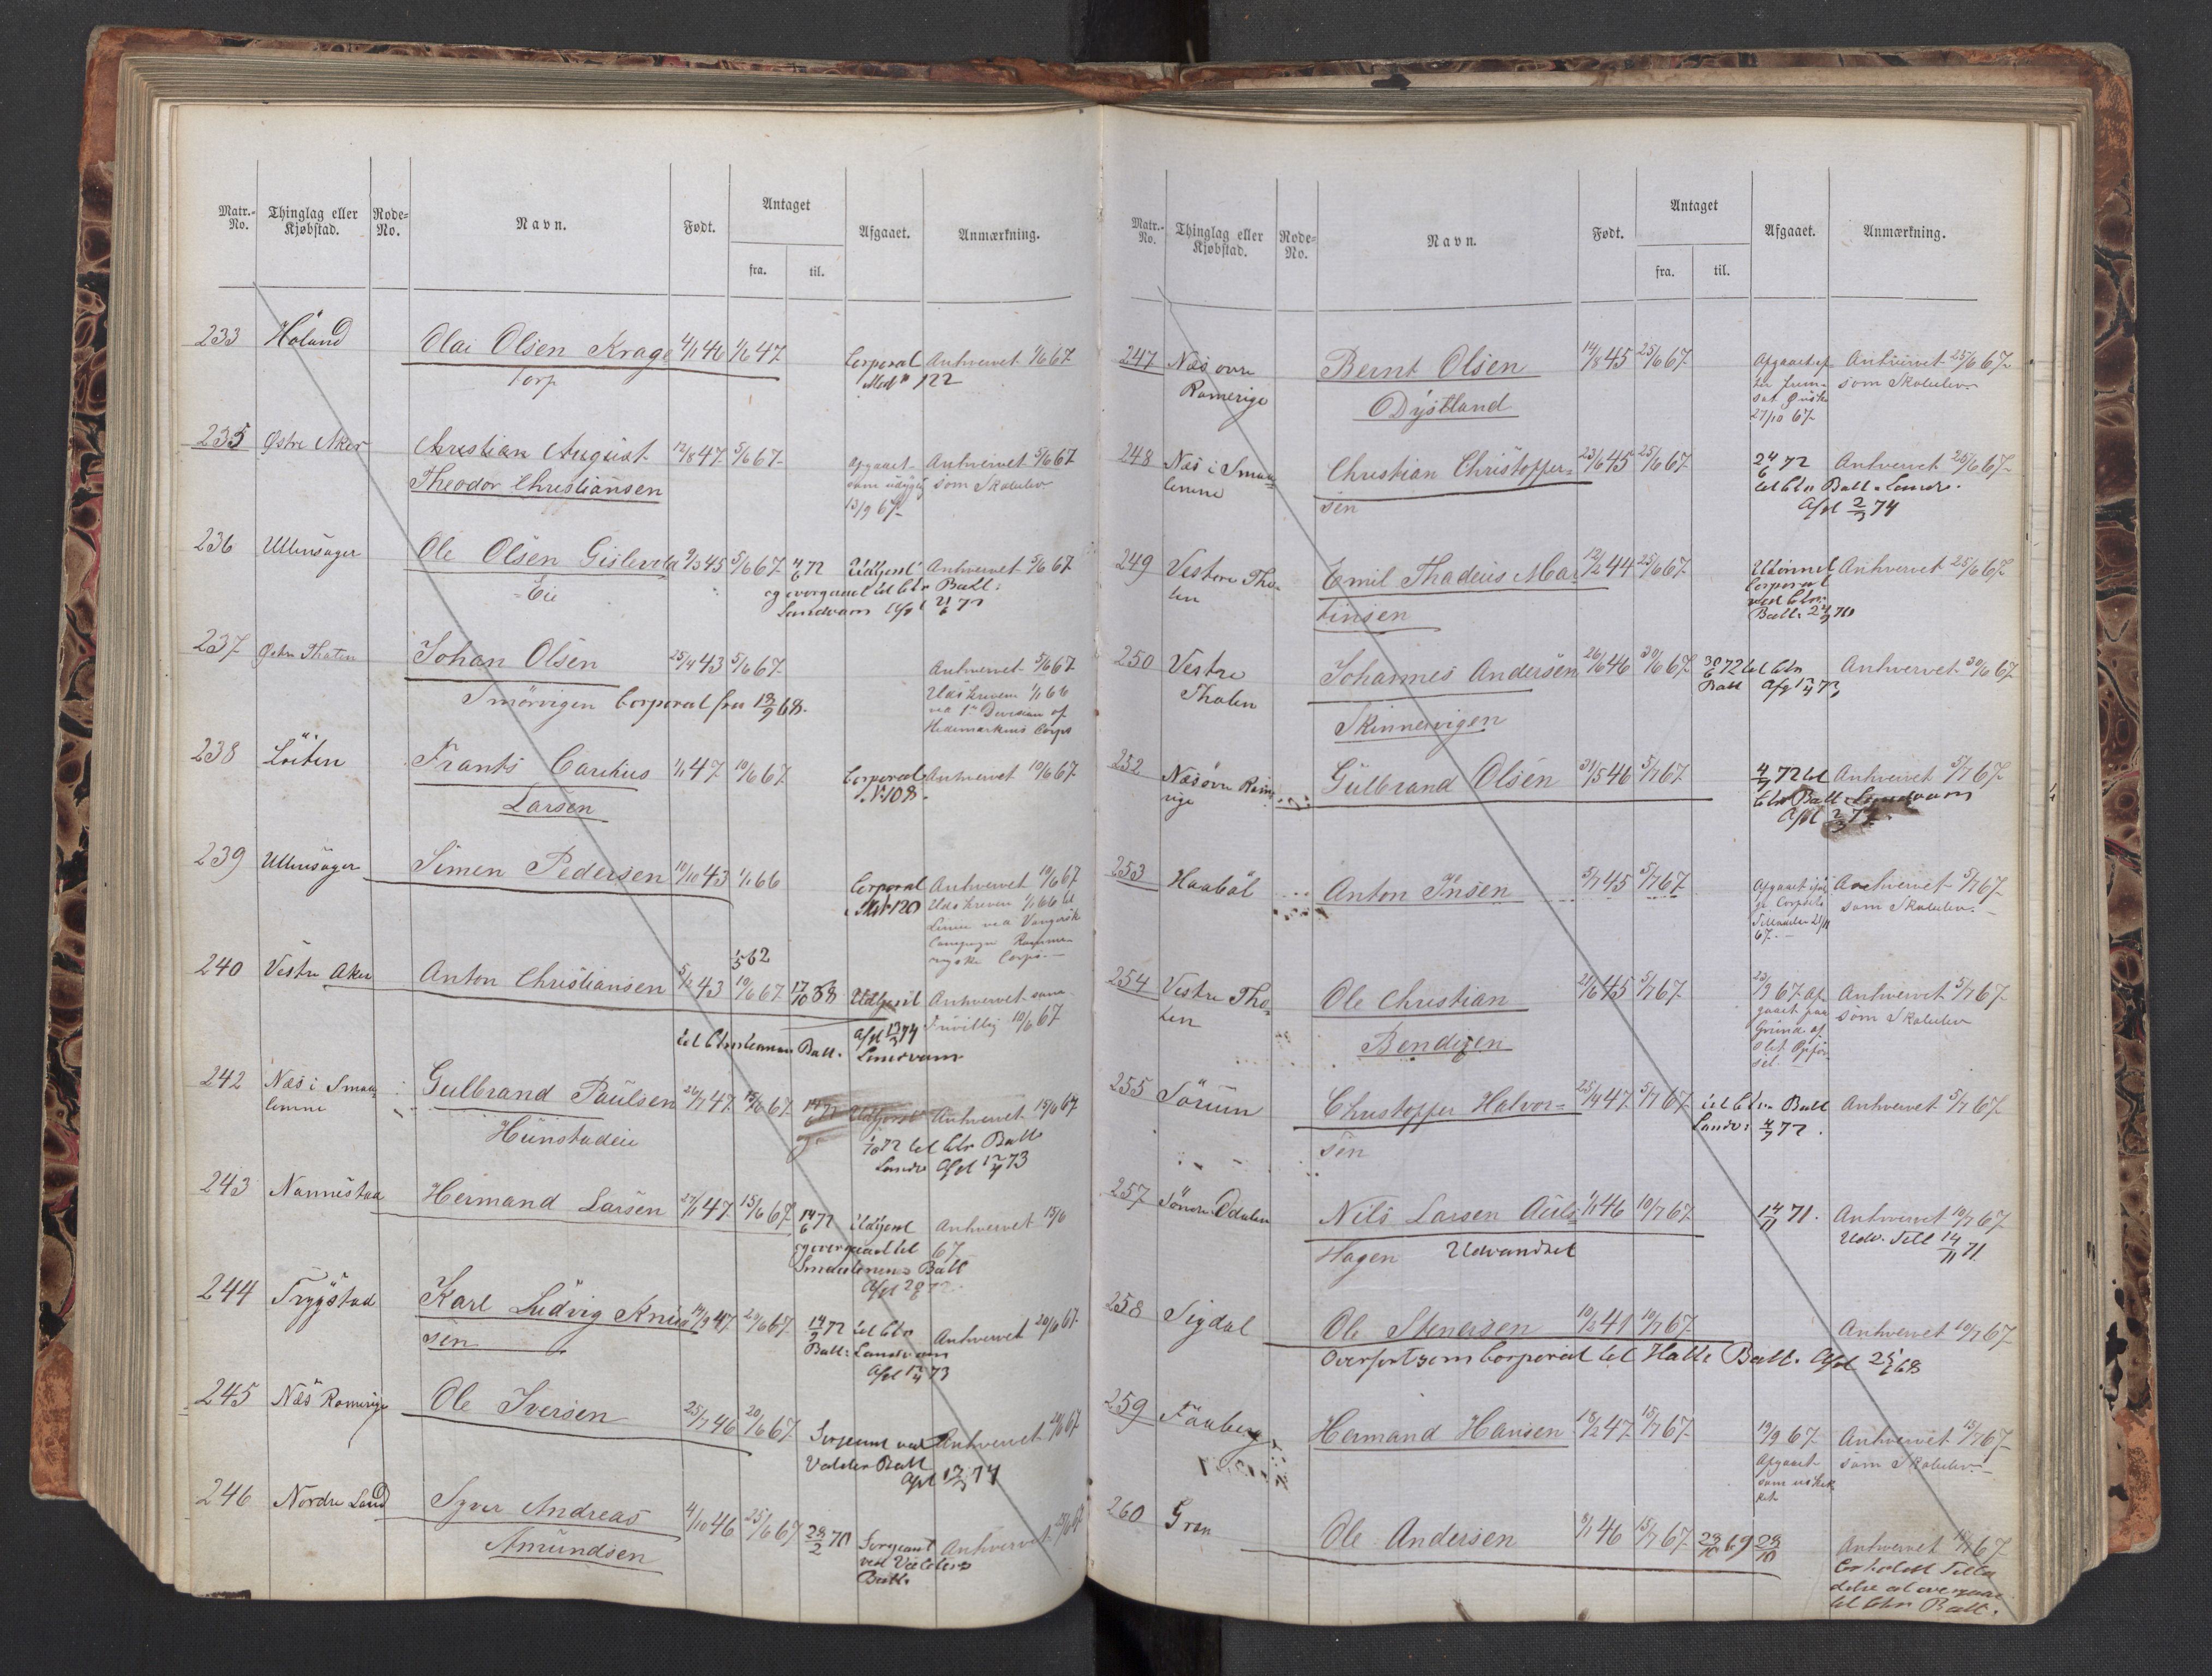 Matr.-No. Thinglag eller Kjøbstad. Rode-No. Navn. Født. Antaget fra. til. Afgaaet. Anmærkning.
233 Höland Olai Olsen Krage 4/1 46 1/6 47 Corporal Anhvervet 1/6 67
torp 122
235 Østre Aker Christian August 12/8 47 5/6 67 Afgaaet Anhvervet 5/6 67
Theodor Christiansen som udygtig som Skoleelev
13/9 67
236 Ullensager Ole Olsen Gislevold 9/3 45 5/6 67 4/6 72 Udtjent Anhvervet 5/6 67
Eie og overgaaet til Chr. Batt:
Landværn
237 Østre Thoten Johan Olsen 25/4 43 5/6 67 Anhvervet 5/6 67
Smörvigen Corporal fra 13/9 68. Udskreven 1/1 66
ved 1ste Division af
Hedemarkens Corps
238 Löiten Frants Carelius 1/1 47 10/6 67 Corporal Anhvervet 10/6 67
Larsen No 108
239 Ullensager Simen Pedersen 10/10 43 1/1 66 Corporal Anhvervet 10/6 67
Mat 120 Udskreven 1/1 66 til
Linien ved
Compagni
Corps.
5/5 62
240 Vestre Aker Anton Christiansen 5/2 43 10/6 67 17/10 68 Udtjent Anhvervet som
Frivillig 10/6 67
til Christiania Batt. Landværn
242 Næs i Smaa Gulbrand Paulsen 26/7 47 15/6 67 Udtjent Anhvervet 15/6 67
lenene Hunstadeie
72 til Chr Batt
Landv Afg 12/4 73
243 Nannestad Hermand Larsen 27/1 47 15/6 67 14/6 72 Udtjent Anhvervet 15/6
og overgaaet til 67
Smaalenenes Batt
244 Trygstad Karl Ludvig Knud 14/9 47 20/6 67 14/9 72 til Chr Anhvervet 20/6 67
sen Batt: Landværn
Afg 12/4 73
245 Næs Romerige Ole Iversen 25/7 46 20/6 67 Sergeant ved Anhvervet 20/6 67
Valders Batt
Afg 12/3 74
246 Nordre Land Syver Andreas 4/10 46 25/6 67 28/2 70 Sergeant Anhvervet 25/6 67
Amundsen ved Valders
Batt.
Matr.-No. Thinglag eller Kjøbstad. Rode-No. Navn. Født. Antaget fra. til. Afgaaet. Anmærkning.
247 Næs övre Bernt Olsen 14/8 45 25/6 67 Afgaaet ef Anhvervet 25/6 67
Romerige Dystland ter frem som Skoleelev
sat Ønske
27/10 67
248 Næs i Smaa Christian Christoffer= 23/6 45 25/6 67 24/6 72 Anhvervet 25/6 67
lenene sen til Chr Batt. Landv.
Afg 2/3 74
249 Vestre Tho Emil Thadeus Mar 12/2 44 25/6 67 Udnævnt Anhvervet 25/6 67
ten tinsen Corporal
ved Chr.
Batt.
250 Vestre Johannes Andersen 26/6 46 30/6 67 30/6 72 til Chr Anhvervet 30/6 67
Thoten Batt Afg 12/4 73
Skinnesvigen
252 Næs övre Rome Gulbrand Olsen 31/5 46 5/7 67 4/7 72 til Anhvervet 5/7 67
rige Chr Batt Landværn
Afg 2/3 74.
253 Haabøl Anton Jnsen 5/7 45 5/7 67 Anhvervet 5/7 67
som Skoleelev.
Tilladelse
67.
254 Vestre Tho Ole Christian 21/6 45 5/7 67 23/9 67 af Anhvervet 5/7 67
ten Bendigen gaaet paa som Skoleelev
Grund af
slet Opför
sel.
255 Sörum Christoffer Halvor= 25/4 47 5/7 67 til Chr. Batt Anhvervet 5/7 67
sen Landv: 4/7 72.
257 Söndre Odalen Nils Larsen Auls 1/1 46 10/7 67 14/11 71. Anhvervet 10/7 67
Hagen Udvandret Udv. Till 14/11 71.
258 Sigdal Ole Stenersen 10/2 41 10/7 67 Anhvervet 10/7 67
Overført som Corporal til Batt.
259 Faaberg Hermand Hansen 18/2 47 15/7 67 19/9 67 Anhvervet 15/7 67
Afgaaet som Skoleelev
som
260 Gran Ole Andersen 8/1 46 15/7 67 23/10 69 23/10 Anhvervet 15/7 67
Tilla
delse at overgaae
til Chr Batt.